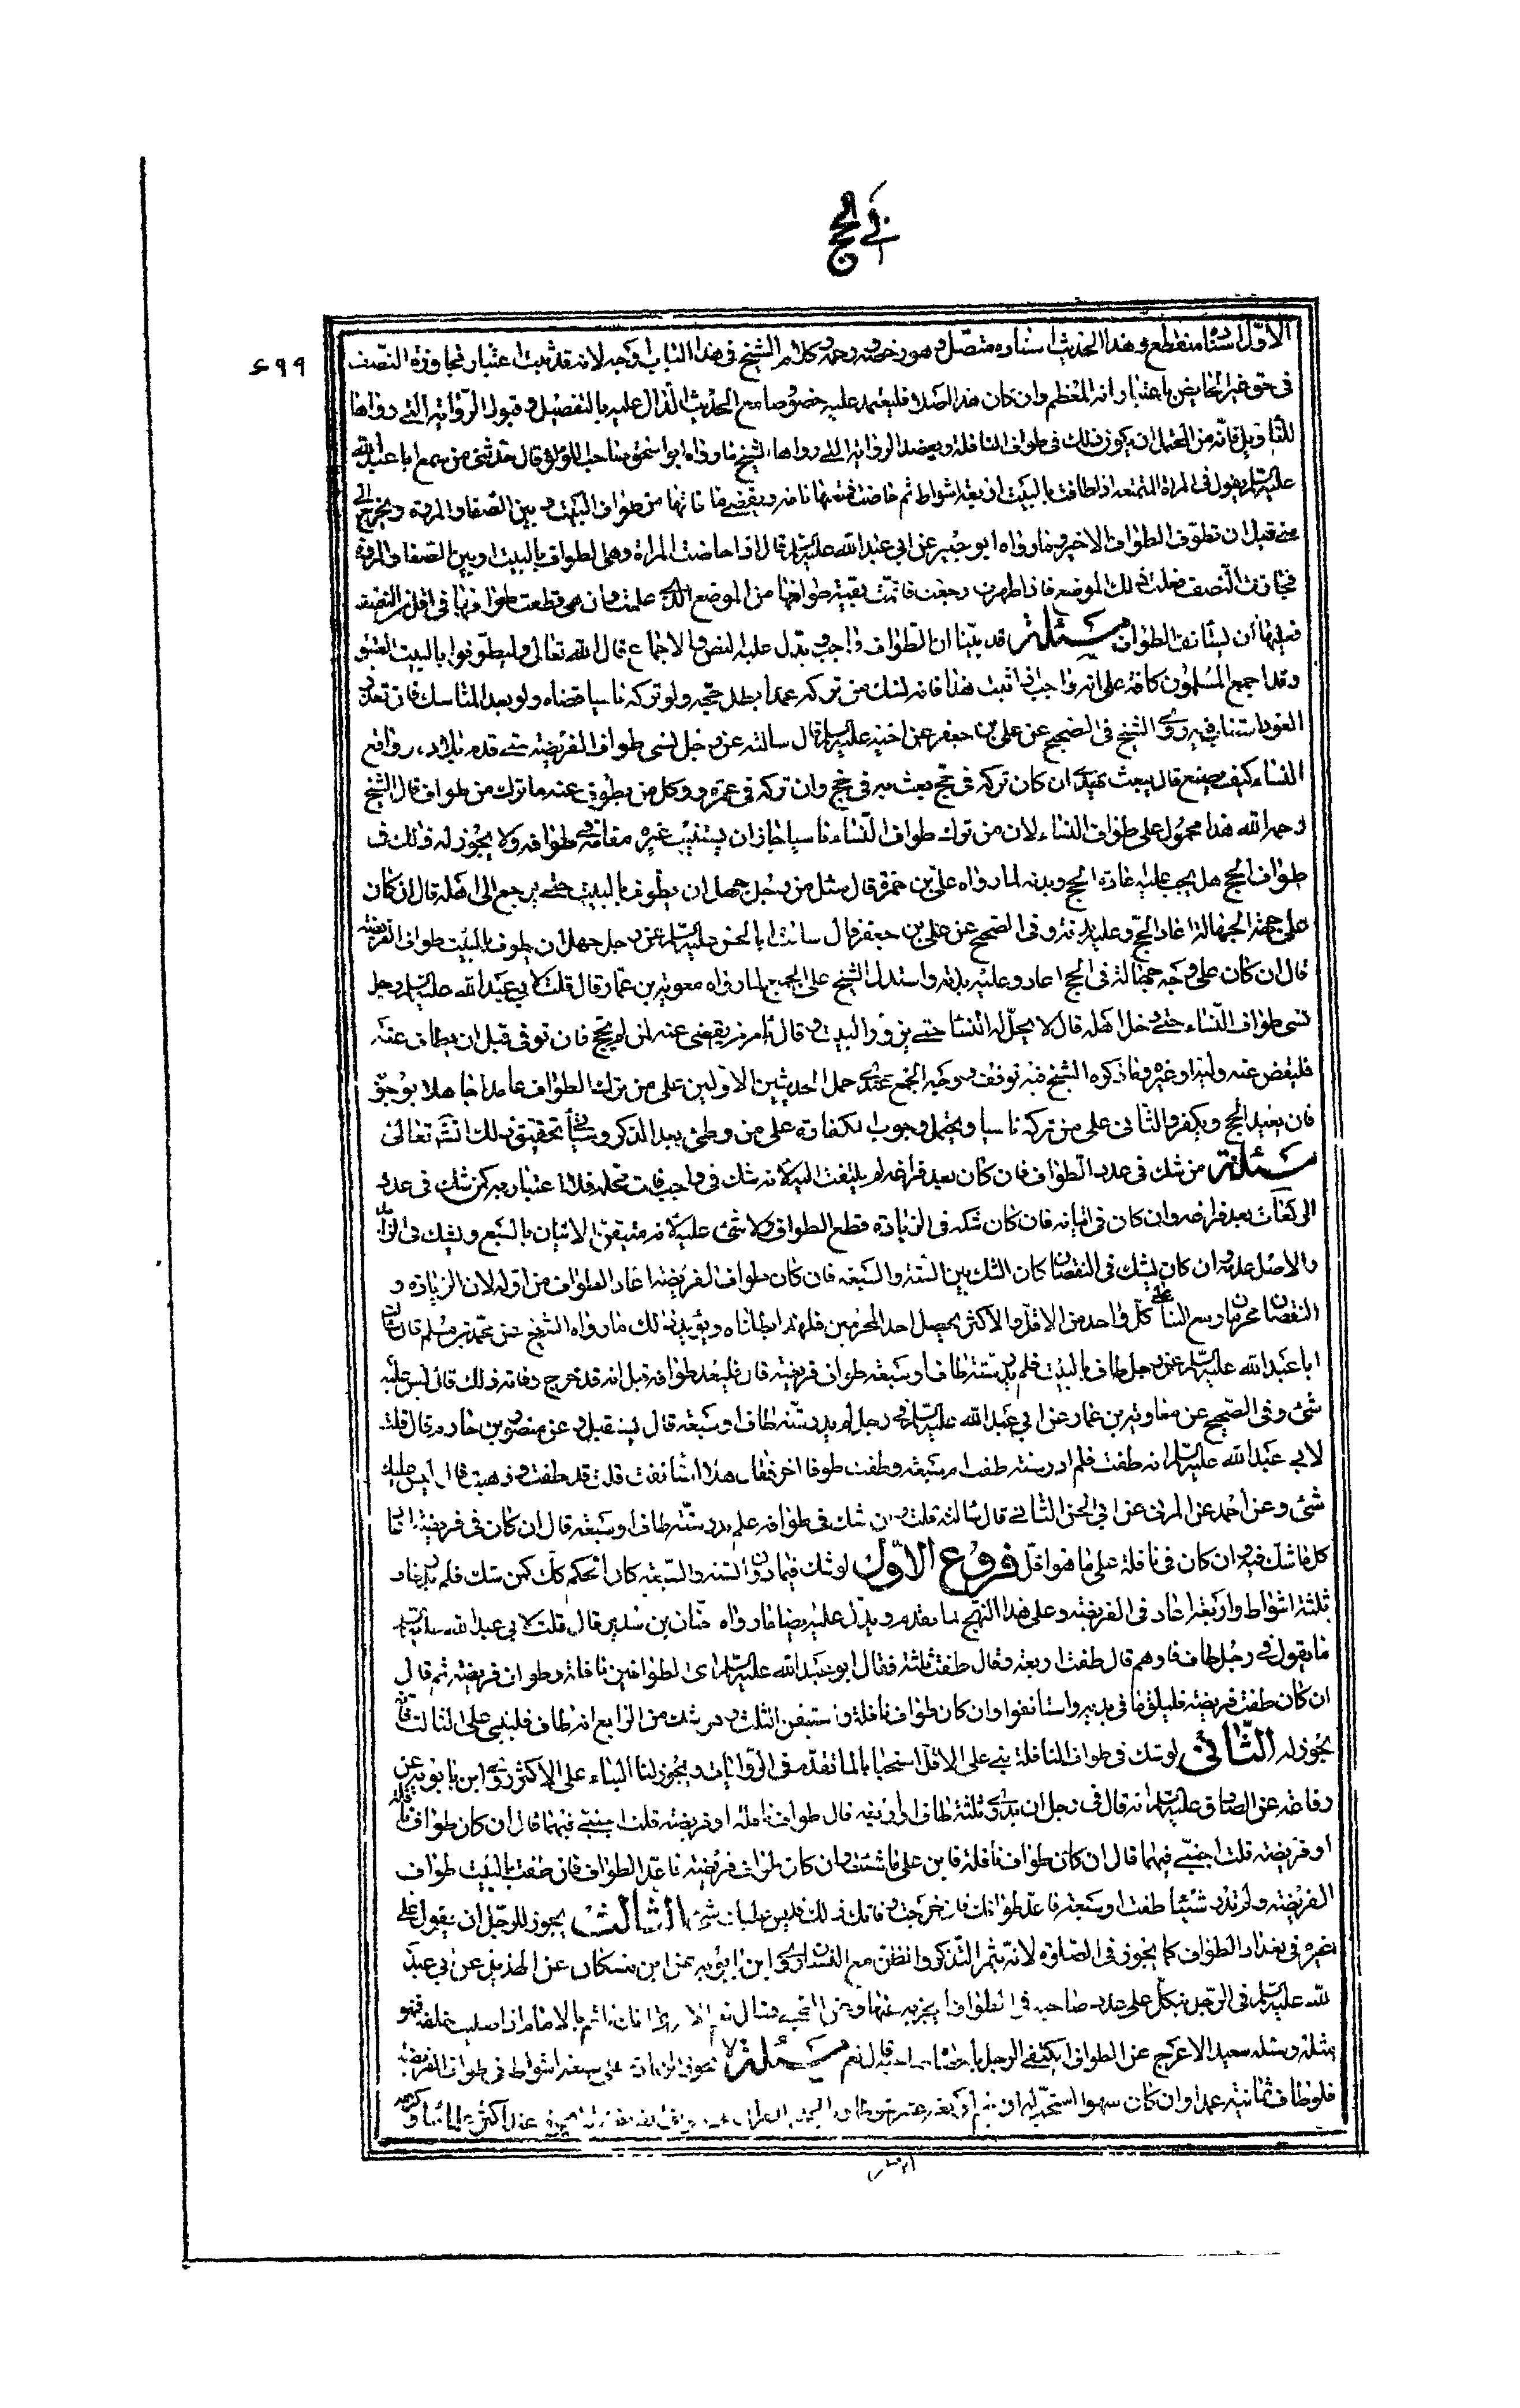 في الحج
۶۹۹
الاول اسناد منقطع وهذا الحديث اسناده متصل وهو رخصة ورحمة وكلام الشيخ في هذا الباب اوجه لانه قد ثبت اعتبار مجاوزة النصف
في حق غير الحايض باعتبار انه المعظم وان كان هذا الصلاة فليعتمد عليه خصوصا مع الحديث الدال عليه بالتفصيل وقبول الرواية التي رواها
للتاويل فانه من المحتمل ان يكون ذلك في طواف النافلة ويعضد الرواية التي رواها الشيخ ما رواه ابو اسحق صاحب اللؤلؤ قال حدثني من سمع ابا عبد الله
عليه السلام يقول في المراة المتمتعة اذا طافت بالبيت اربعة اشواط ثم حاضت فمتعتها تامة ويقضي ما فاتها من طواف البيت وبين الصفا والمروة ويخرج الى
منى قبل ان تطوف الطواف الاخير وما رواه ابو بصير عن ابي عبد الله عليه السلام قال اذا حاضت المراة وهي في الطواف بالبيت او بين الصفا والمروة
فجاوزت النصف فعلمت ذلك الموضع فاذا طهرت رجعت فاتمت بقية طوافها من الموضع الذي علمت وان هي قطعت طوافها في اقل من النصف
فعليها ان يستانف الطواف مسئلة قد بينا ان الطواف واجب ويدل عليه النص والاجماع قال الله تعالى وليطوفوا بالبيت العتيق
وقد اجمع المسلمون كافة على انه واجب اذا ثبت هذا فانه نسك من تركه عمدا بطل حجه ولو تركه ناسيا قضاه ولو بعد المناسك فان تعذر
العود استناب فيه روى الشيخ في الصحيح عن علي بن جعفر عن اخيه عليه السلام قال سالته عن رجل نسي طواف الفريضة حتى قدم بلاده وواقع
النساء كيف يصنع قال يبعث بهدي ان كان تركه في حج بعث به في حج وان تركه في عمرة ووكل من يطوف عنه ما ترك من طواف قال الشيخ
رحمه الله هذا محمول على طواف النساء لان من ترك طواف النساء ناسيا جاز ان يستنيب غيره مقامه في طوافه ولا يجوز له ذلك في
طواف الحج هل يجب عليه اعادة الحج وبدنة لما رواه علي بن حمزة قال سئل من رجل جهل ان يطوف بالبيت حتى يرجع الى اهله قال ان كان
على جهة الجهالة اعاد الحج وعليه بدنة وفي الصحيح عن علي بن جعفر قال سالت ابا الحسن عليه السلام عن رجل جهل ان يطوف بالبيت طواف الفريضة
قال ان كان على وجه جهالة في الحج اعاد وعليه بدنة واستدل الشيخ على الجمع بما رواه معوية بن عمار قال قلت لابي عبد الله عليه السلام رجل
نسي طواف النساء حتى دخل اهله قال لا يحل له النساء حتى يزور البيت وقال يامر من يقضي عنه ان لم يحج فان توفي قبل ان يطاف عنه
فليقض عنه وليه او غيره وما ذكره الشيخ فيه توقف ووجه الجمع عندي حمل الحديثين الاولين على من ترك الطواف عامدا جاهلا بوجوبه
فان يعيد الحج ويكفر والثاني على من تركه ناسيا ويحتمل وجوب الكفارة على من وطئ بعد الذكر وسياتي تحقيق ذلك انشا تعالى
مسئلة من شك في عدد الطواف فان كان بعد فراغه لم يلتفت اليه لانه شك في واجب فات محله فلا اعتبار به كمن شك في عدد
الركعات بعد فراغه وان كان في اثنائه فان كان شكه في الزيادة قطع الطواف ولا شئ عليه لانه متيقن الاتيان بالسبع ويشك في الزايد
والاصل عدمه وان كان يشك في النقصان كان الشك بين الستة والسبعة فان كان طواف الفريضة اعاد الطواف من اوله لان الزيادة و
النقصان محرمان وسع البناء على كل واحد من الاقل والاكثر يحصل احد المحرمين فلهذا ابطلناه ويؤيد ذلك ما رواه الشيخ عن محمد بن مسلم قال سالت
ابا عبد الله عليه السلام عن رجل طاف بالبيت فلم يدر ستة طاف او سبعة طواف فريضة قال فليعد طوافه قيل انه قد خرج وفاته ذلك قال ليس عليه
شئ وفي الصحيح عن معاوية بن عمار عن ابي عبد الله عليه السلام في رجل لم يدر ستة طاف او سبعة قال يستقبل وعن منصور بن حازم قال قلت
لابي عبد الله عليه السلام اني طفت فلم ادر ستة طفت ام سبعة وطفت طوفا اخر فقال هلا استانفت قلت قد طفت وذهبت قال ليس عليك
شئ وعن احمد عن المرفي عن ابي الحسن الثاني قال سالته قلت رجل شك في طوافه فلم يدر ستة طاف او سبعة قال ان كان في فريضة اعاد
كل ما شك فيه وان كان في نافلة على ما هو اقل فروع الاول لو شك فيما دون الستة والسبعة كان الحكم كك كمن شك فلم يدر طاف
ثلثة اشواط او اربعة اعاد في الفريضة وعلى هذا النهج لما تقدم ويدل عليه ايضا ما رواه حنان بن سدير قال قلت لابي عبد الله عليه السلام
ما يقول في رجل طاف فاوهم قال طفت اربعة وقال طفت ثلثة فقال ابو عبد الله عليه السلام اي الطوافين نافلة او طواف فريضة ثم قال
ان كان طفت فريضة فليلق ما في يديه واستانفوا وان كان طواف نافلة واستيقن الثلث وهو شك من الرابع انه طاف فليبني على الثالث فانه
يجوز له الثاني لو شك في طواف النافلة بنى على الاقل استحبابا لما تقدم في الروايات ويجوز لنا البناء على الاكثر روى ابن بابويه عن
رفاعة عن الصادق عليه السلام انه قال في رجل ان يدري ثلثة طاف او اربعة قال طواف نافلة او فريضة قلت اجبني فيهما قال ان كان طواف نافلة
او فريضة قلت اجبني فيهما قال ان كان طواف نافلة فابن على ما شئت وان كان طواف فريضة فاعد الطواف فان طفت بالبيت طواف
الفريضة ولم تدر شيئا طفت او سبعة فاعد طوافك فان خرجت وفاتك ذلك فليس عليك شئ الثالث يجوز للرجل ان يقول على
غيره في تعداد الطواف كما يجوز في الصلوة لانه يثمر التذكر والظن مع النسيان روى ابن بابويه عن ابن مسكان عن الهذيل عن ابي عبد
الله عليه السلام في الرجل يتكل على عدد صاحبه في الطواف ايجزيه عنها وعن الصبي فقال نعم الا ترى انك تاتم بالامام اذا صليت خلفه فهو
مثله وسئله سعيد الاعرج عن الطواف ايكتفي الرجل باحصاء صاحبه قال نعم مسئلة لا يجوز الزيادة على سبعة اشواط في طواف الفريضة
فلو طاف ثمانية عمدا وان كان سهوا استحب له ان يتم اربعة عشر شوطا